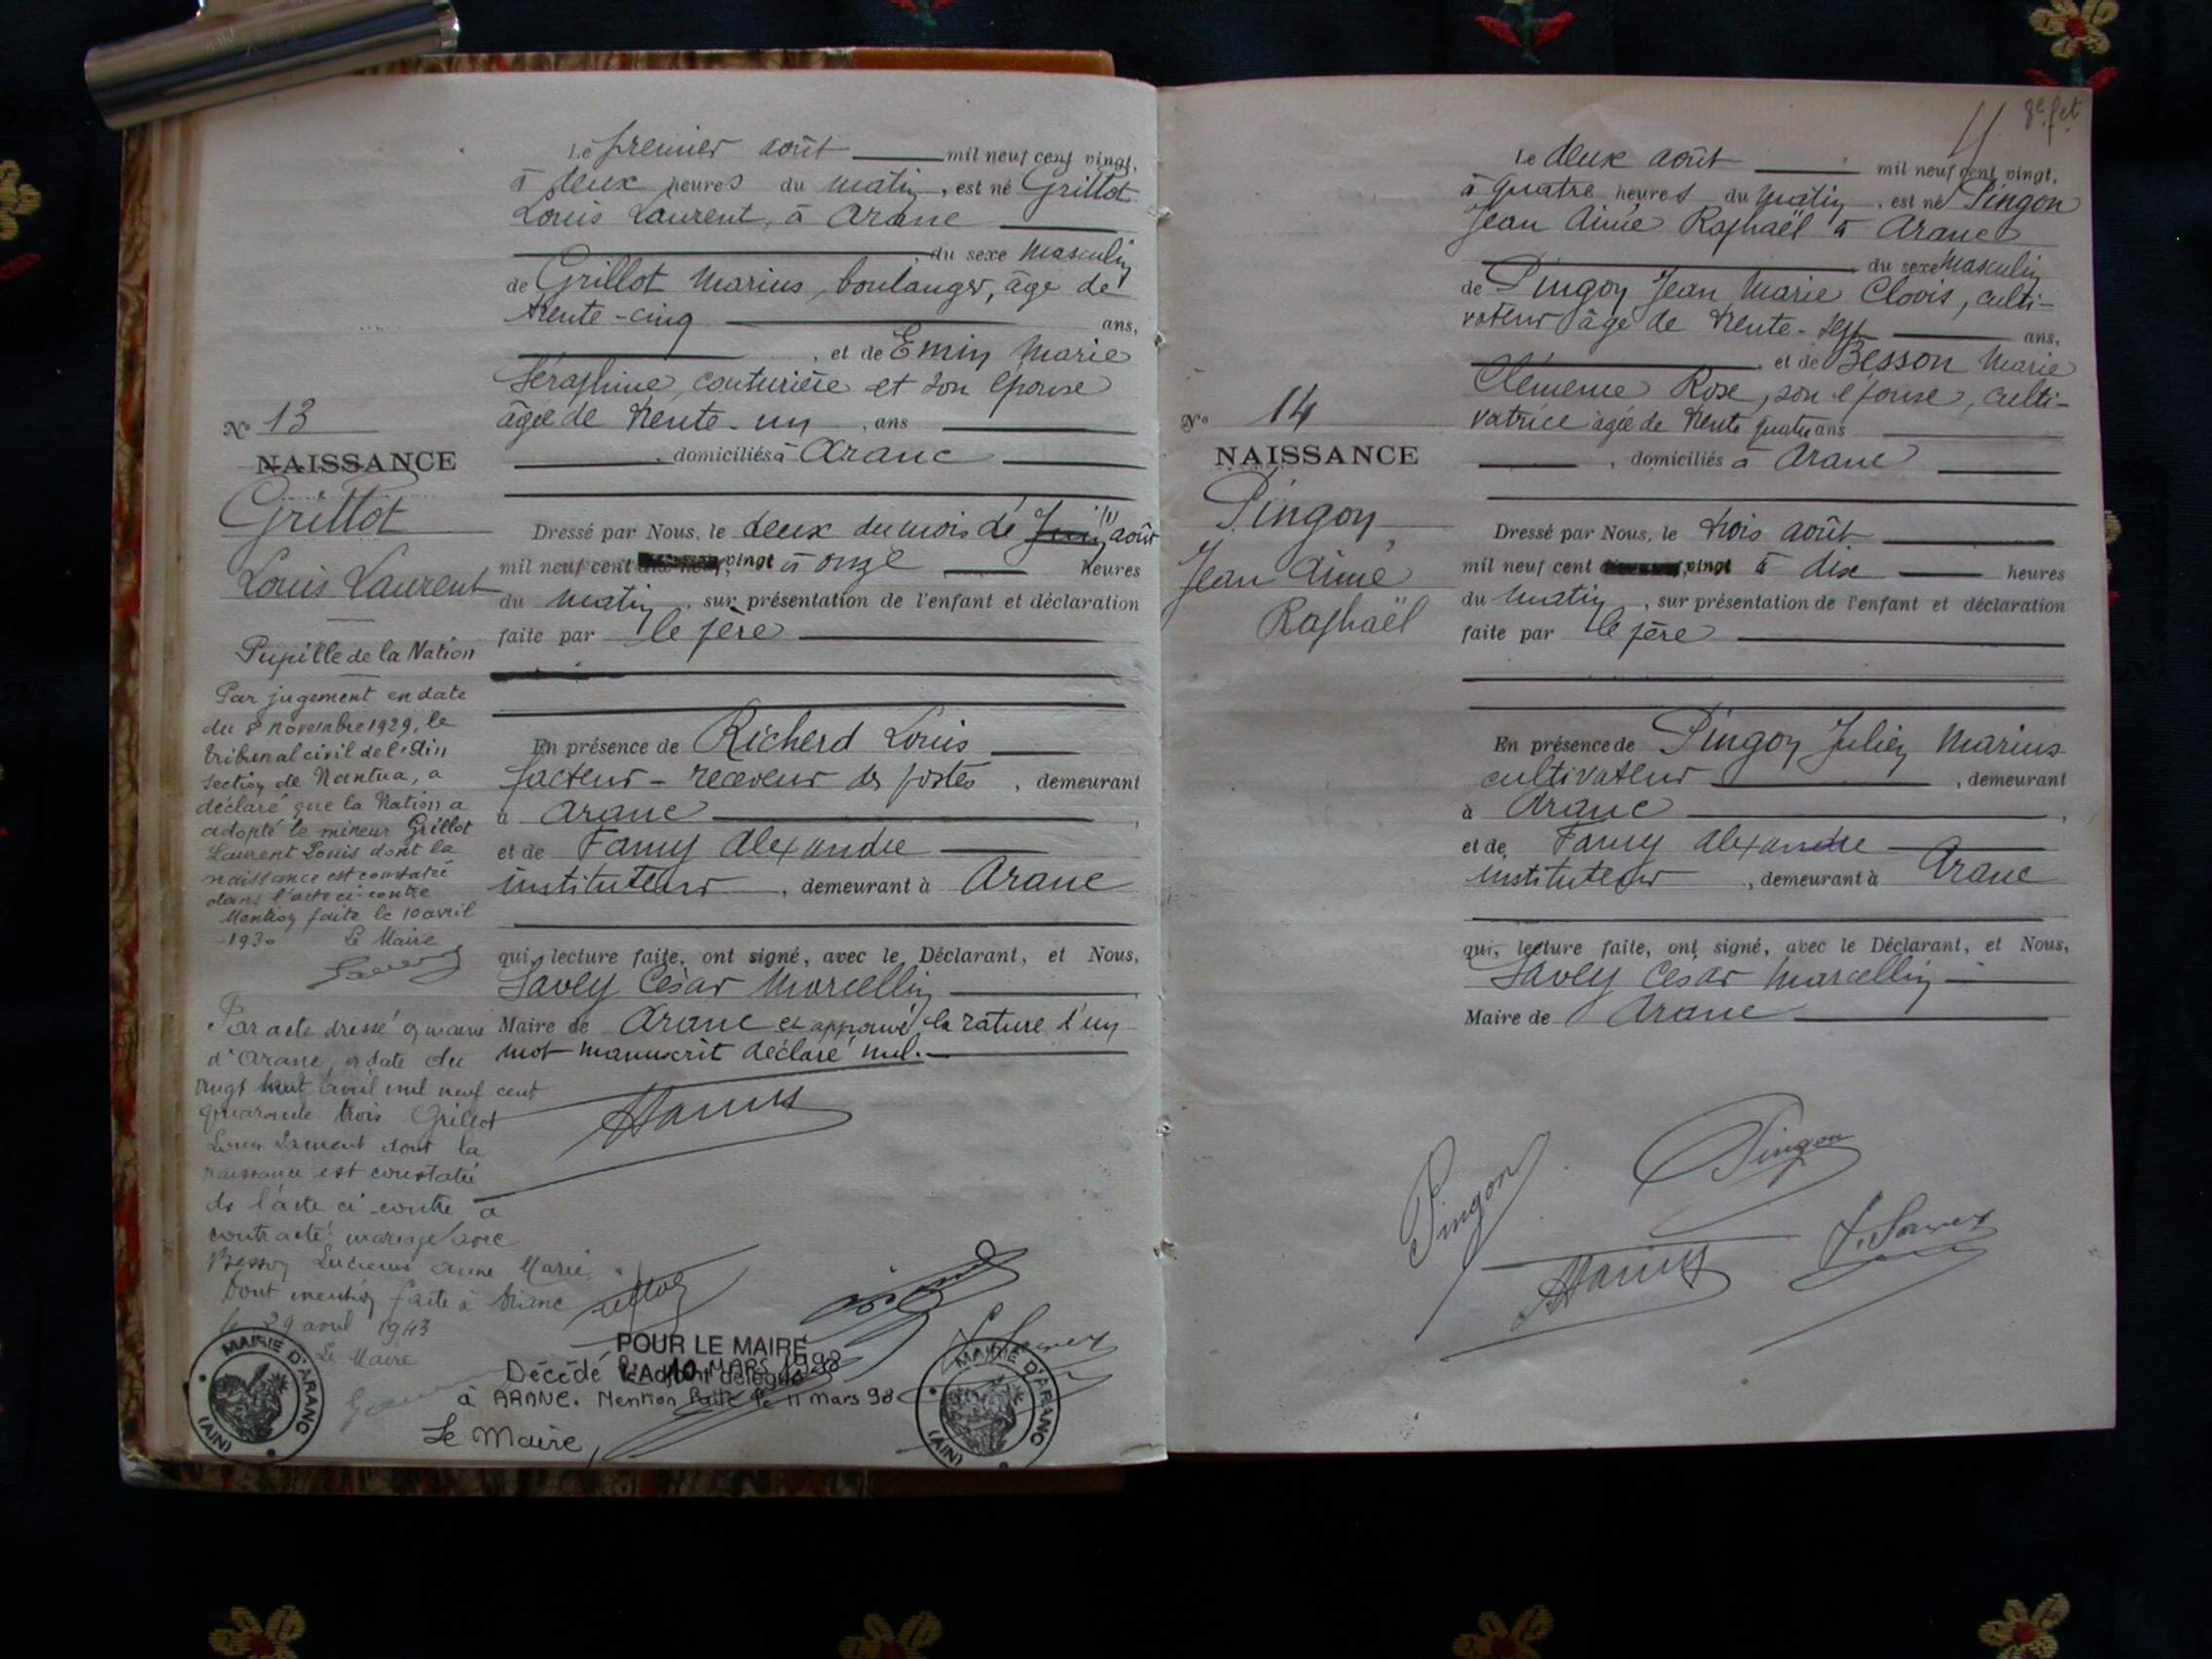 Le premier août mil neuf cent vingt,
à deux heures du matin, est né Grillot
Louis Laurent, à Aranc
du sexe masculin
de Grillot Marius, boulanger, âgé de
trente-cinq ans,
, et de Emin Marie
Séraphine, couturière et son épouse
âgée de trente-un, ans
, domiciliés à Aranc
Nº 13
NAISSANCE
Grillot
Louis Laurent
Dressé par Nous, le deux du mois de Juin (1) août
mil neuf cent vingt à onze heures
du matin, sur présentation de l'enfant et déclaration
faite par le père
En présence de Richerd Louis
facteur-receveur des postes, demeurant
à Aranc,
et de Famy Alexandre
instituteur, demeurant à Aranc
qui, lecture faite, ont signé, avec le Déclarant, et Nous,
Savey César Marcellin
Maire de Aranc et approuvé la rature d'un
mot manuscrit déclaré nul.
Pupille de la Nation
Par jugement en date
du 8 novembre 1929, le
tribunal civil de l'Ain
section de Nantua, a
déclaré que la Nation a
adopté le mineur Grillot
Laurent Louis dont la
naissance est constatée
dans l'acte ci-contre
Mention faite le 10 avril
1930 Le Maire
Par acte dressé en mairie
d'Aranc, en date du
vingt huit avril mil neuf cent
quarante trois Grillot
Louis Laurent dont la
naissance est constatée
ds l'acte ci-contre a
contracté mariage avec
Besson Anne Marie
Dont mention faite à Aranc
le 29 avril 1943
Le Maire
MAIRIE D'ARANC
(AIN)
POUR LE MAIRE
L'Adjoint délégué
Décédé le 10 MARS 1998
à ARANC. Mention faite le 11 mars 98
Le Maire,
MAIRIE D'ARANC
(AIN)
Le deux août mil neuf cent vingt,
à quatre heures du matin, est né Pingon
Jean Aimé Raphaël à Aranc
du sexe masculin
de Pingon Jean Marie Clovis, culti-
vateur âgé de trente-sept ans,
et de Besson Marie
Clémence Rose, son épouse, culti-
vatrice âgée de trente quatre ans
, domiciliés à Aranc
Nº 14
NAISSANCE
Pingon,
Jean Aimé
Raphaël
Dressé par Nous, le trois août
mil neuf cent vingt à dix heures
du matin, sur présentation de l'enfant et déclaration
faite par le père
En présence de Pingon Julien Marius
cultivateur, demeurant
à Aranc,
et de Famy Alexandre
instituteur, demeurant à Aranc
qui, lecture faite, ont signé, avec le Déclarant, et Nous,
Savey César Marcellin
Maire de Aranc
Pingon
Pingon